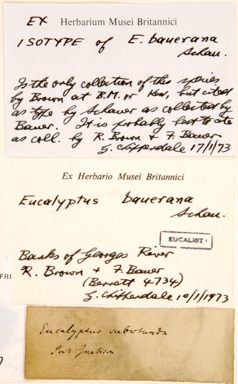 EX Herbarium Musei Britannici
ISOTYPE of E. bauerana
Schau.
Is the only collection of this species
by Brown at B.M. or Kew, but cited
as type by Schauer as collected by
Bauer. It is probably best to cite
as coll. by R. Brown & F. Bauer
G. Chippendale 17/1/73
Ex Herbario Musei Britannici
Eucalyptus bauerana
Schau.
EUCALIST
Banks of Georges River
R. Brown & F. Bauer
(Bennett 4734)
G. Chippendale 10/1/1973
Eucalyptus subrotunda
Port Jackson